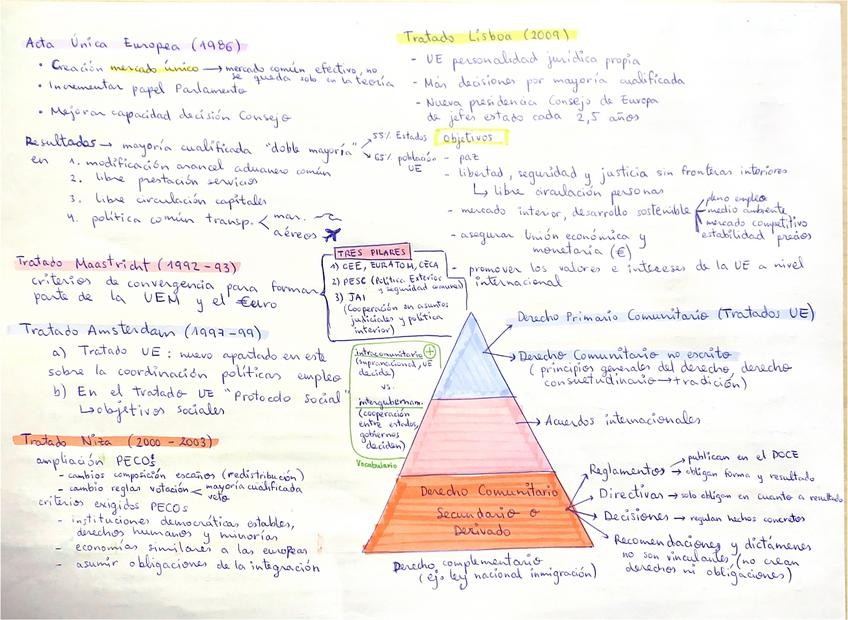 Acta Única Europea (1986)
• Creación mercado único → mercado común efectivo, no
se queda sob. en la teoría
• Incrementar papel Parlamento
• Mejorar capacidad decisión Consejo
Resultados → mayoría cualificada "doble mayoría"
55% Estados
65% población
UE
en 1. modificación arancel aduanero común
2. libre prestación servicios
3. libre circulación capitales
4. política común transp. < mar.
aéreos
Tratado Maastricht (1992-93)
criterios de convergencia para formar
parte de la UEM y el €uro
TRES PILARES
1) CEE, EURATOM, CECA
2) PESC (Política Exterior
y seguridad comunes)
3) JAI
(Cooperación en asuntos
judiciales y política
interior)
Tratado Amsterdam (1997-99)
a) Tratado UE: nuevo apartado en este
sobre la coordinación políticas empleo
b) En el tratado UE "Protocolo Social"
↳ objetivos sociales
Intracomunitario +
(supranacional, UE
decide)
vs.
intergubernam.
(cooperación
entre estados,
gobiernos
deciden)
Vocabulario
Tratado Niza (2000-2003)
ampliación PECOs
- cambios composición escaños (redistribución)
- cambio reglas votación < mayoría cualificada
veto
criterios exigidos PECOs
- instituciones democráticas estables,
derechos humanos y minorías
- economías similares a las europeas
- asumir obligaciones de la integración
Tratado Lisboa (2009)
- UE personalidad jurídica propia
- Más decisiones por mayoría cualificada
- Nueva presidencia Consejo de Europa
de jefes estado cada 2,5 años
Objetivos
- paz
- libertad, seguridad y justicia sin fronteras interiores
↳ libre circulación personas
- mercado interior, desarrollo sostenible
pleno empleo
medio ambiente
mercado competitivo
estabilidad precios
- asegurar Unión económica y
monetaria (€)
- promover los valores e intereses de la UE a nivel
internacional
Derecho Primario Comunitario (Tratados UE)
Derecho Comunitario no escrito
(principios generales del derecho, derecho
consuetudinario → tradición)
Acuerdos internacionales
Derecho Comunitario
Secundario o
Derivado
Reglamentos → publican en el DOCE
→ obligan forma y resultado
Directivas → solo obligan en cuanto a resultado
Decisiones → regulan hechos concretos
Recomendaciones y dictámenes
no son vinculantes (no crean
derechos ni obligaciones)
Derecho complementario
(ej. ley nacional inmigración)